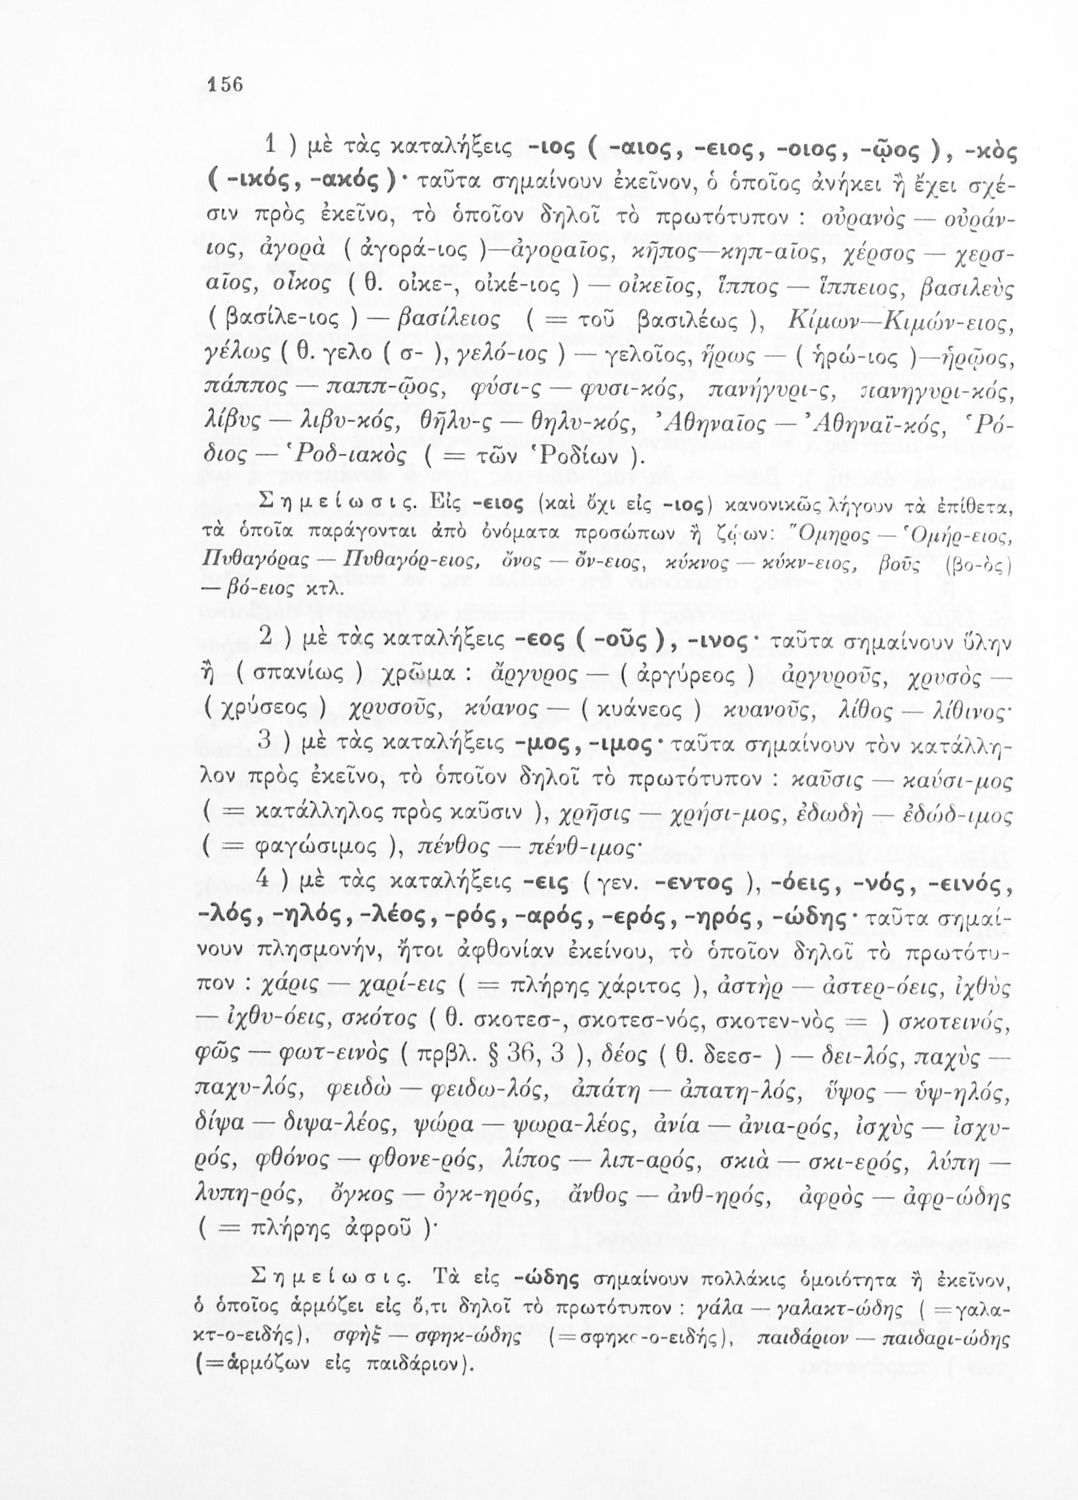 156
1 ) μὲ τὰς καταλήξεις -ιος ( -αιος, -ειος, -οιος, -ῷος ), -κὸς
( -ικός, -ακός )· ταῦτα σημαίνουν ἐκεῖνον, ὁ ὁποῖος ἀνήκει ἢ ἔχει σχέ-
σιν πρὸς ἐκεῖνο, τὸ ὁποῖον δηλοῖ τὸ πρωτότυπον : οὐρανὸς — οὐράν-
ιος, ἀγορὰ ( ἀγορά-ιος )—ἀγοραῖος, κῆπος—κηπ-αῖος, χέρσος — χερσ-
αῖος, οἶκος ( θ. οἰκε-, οἰκέ-ιος ) — οἰκεῖος, ἵππος — ἵππειος, βασιλεὺς
( βασίλε-ιος ) — βασίλειος ( = τοῦ βασιλέως ), Κίμων—Κιμών-ειος,
γέλως ( θ. γελο ( σ- ), γελό-ιος ) — γελοῖος, ἥρως — ( ἡρώ-ιος )—ἡρῷος,
πάππος — παππ-ῷος, φύσι-ς — φυσι-κός, πανήγυρι-ς, πανηγυρι-κός,
λίβυς — λιβυ-κός, θῆλυ-ς — θηλυ-κός, Ἀθηναῖος — Ἀθηναϊ-κός, Ῥό-
διος — Ῥοδ-ιακὸς ( = τῶν Ῥοδίων ).
Σημείωσις. Εἰς -ειος (καὶ ὄχι εἰς -ιος) κανονικῶς λήγουν τὰ ἐπίθετα,
τὰ ὁποῖα παράγονται ἀπὸ ὀνόματα προσώπων ἢ ζῴων: Ὅμηρος — Ὁμήρ-ειος,
Πυθαγόρας — Πυθαγόρ-ειος, ὄνος — ὄν-ειος, κύκνος — κύκν-ειος, βοῦς (βο-ὸς)
— βό-ειος κτλ.
2 ) μὲ τὰς καταλήξεις -εος ( -οῦς ), -ινος· ταῦτα σημαίνουν ὕλην
ἢ ( σπανίως ) χρῶμα : ἄργυρος — ( ἀργύρεος ) ἀργυροῦς, χρυσὸς —
( χρύσεος ) χρυσοῦς, κύανος — ( κυάνεος ) κυανοῦς, λίθος — λίθινος·
3 ) μὲ τὰς καταλήξεις -μος, -ιμος· ταῦτα σημαίνουν τὸν κατάλλη-
λον πρὸς ἐκεῖνο, τὸ ὁποῖον δηλοῖ τὸ πρωτότυπον : καῦσις — καύσι-μος
( = κατάλληλος πρὸς καῦσιν ), χρῆσις — χρήσι-μος, ἐδωδὴ — ἐδώδ-ιμος
( = φαγώσιμος ), πένθος — πένθ-ιμος·
4 ) μὲ τὰς καταλήξεις -εις (γεν. -εντος ), -όεις, -νός, -εινός,
-λός, -ηλός, -λέος, -ρός, -αρός, -ερός, -ηρός, -ώδης· ταῦτα σημαί-
νουν πλησμονήν, ἤτοι ἀφθονίαν ἐκείνου, τὸ ὁποῖον δηλοῖ τὸ πρωτότυ-
πον : χάρις — χαρί-εις ( = πλήρης χάριτος ), ἀστὴρ — ἀστερ-όεις, ἰχθὺς
— ἰχθυ-όεις, σκότος ( θ. σκοτεσ-, σκοτεσ-νός, σκοτεν-νὸς = ) σκοτεινός,
φῶς — φωτ-εινὸς ( πρβλ. § 36, 3 ), δέος ( θ. δεεσ- ) — δει-λός, παχὺς —
παχυ-λός, φειδὼ — φειδω-λός, ἀπάτη — ἀπατη-λός, ὕψος — ὑψ-ηλός,
δίψα — διψα-λέος, ψώρα — ψωρα-λέος, ἀνία — ἀνια-ρός, ἰσχὺς — ἰσχυ-
ρός, φθόνος — φθονε-ρός, λίπος — λιπ-αρός, σκιὰ — σκι-ερός, λύπη —
λυπη-ρός, ὄγκος — ὀγκ-ηρός, ἄνθος — ἀνθ-ηρός, ἀφρὸς — ἀφρ-ώδης
( = πλήρης ἀφροῦ )·
Σημείωσις. Τὰ εἰς -ώδης σημαίνουν πολλάκις ὁμοιότητα ἢ ἐκεῖνον,
ὁ ὁποῖος ἁρμόζει εἰς ὅ,τι δηλοῖ τὸ πρωτότυπον : γάλα — γαλακτ-ώδης ( =γαλα-
κτ-ο-ειδής), σφὴξ — σφηκ-ώδης (=σφηκ-ο-ειδής), παιδάριον — παιδαρι-ώδης
(=ἁρμόζων εἰς παιδάριον).